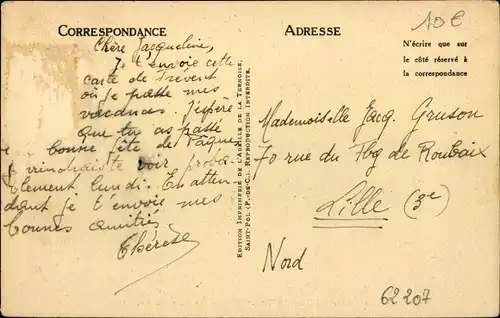 CORRESPONDANCE
Chère Jacqueline,
Je t'envoie cette
carte de Frévent
où je passe mes
vacances. J'espère
que tu as passé
une bonne fête de Pâques
Je viendrai te voir proba-
blement lundi. En atten
dant je t'envoie mes
bonnes amitiés
Thérèse
EDITION IMPRIMERIE DE L'ABEILLE DE LA TERNOISE,
SAINT-POL (P.-DE-C.). REPRODUCTION INTERDITE.
ADRESSE
10€
N'écrire que sur
le côté réservé à
la correspondance
Mademoiselle Jacq. Gruson
70 rue du Fbg de Roubaix
Lille (3e)
Nord
62207